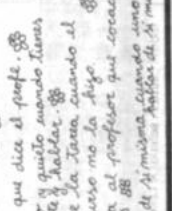 que dice el profe.
y quieto cuando tienes
y hablar.
e la tarea cuando el
urso no la hizo.
a al profesor que
de si misma cuando uno
hablar de si